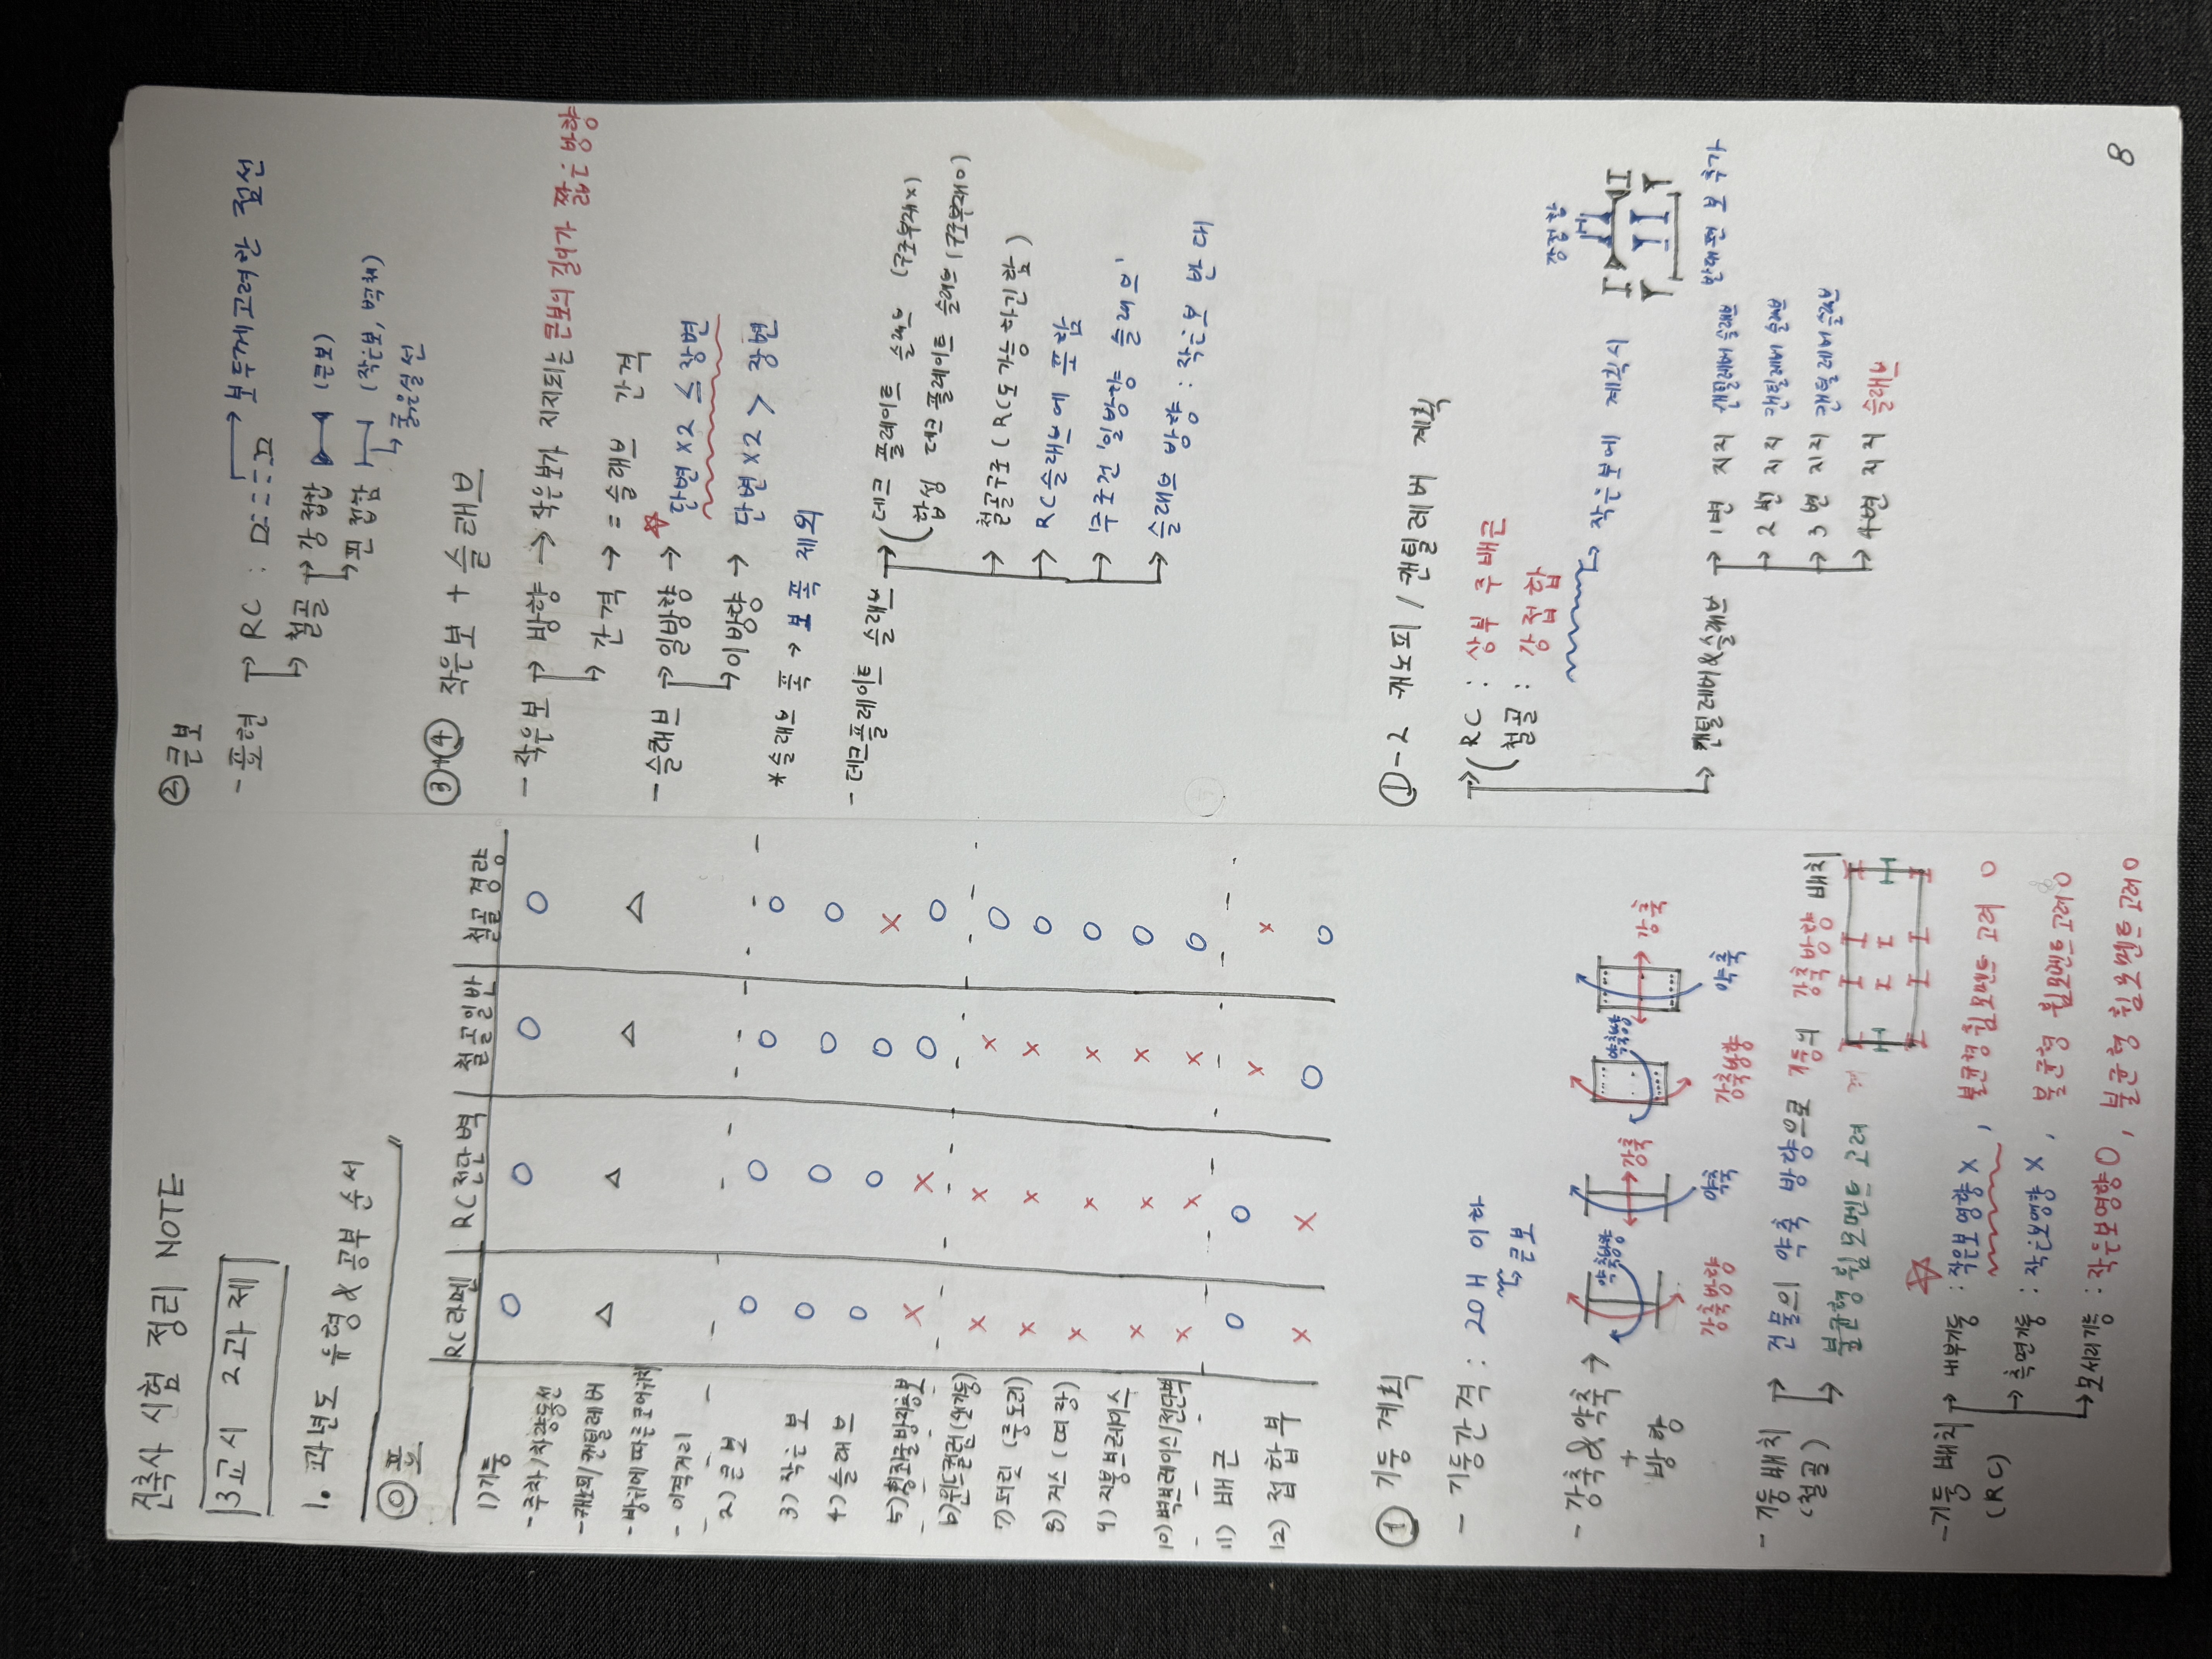 건축사 시험 정리 NOTE
3교시 2과제
1. 과년도 유형 & 공부 순서
⓪ 표
RC라멘 | RC전단벽 | 철골일반 | 철골경량
1) 기둥 O O O O
- 주차/차량동선
- 캐노피/캔틸레버 △ △ △ △
- 방위에 따른 코어위치
- 이격거리
2) 큰 보 O O O O
3) 작은 보 O O O O
4) 슬래브 O O O X
5) X X O O
6) 윈드컬럼(외기둥) X X X O
7) 퍼린(중도리) X X X O
8) 거스(띠장) X X X O
9) 지붕브레이스 X X X O
10) 벽브레이스/전단벽 X X X O
11) 배근 O O X X
12) 접합부 X X O O
① 기둥 계획
- 기둥간격 : 20H 이하
큰보
- 강축&약축 →
+
방향
약축방향 강축 약축방향 강축
강축방향 약축 강축방향 약축
- 기둥배치 → 건물의 약축 방향으로 기둥의 강축방향 배치
(철골) → 불균형 휨모멘트 고려
- 기둥 배치 → 내부기둥 : 작은보영향 X, 불균형휨모멘트 고려 O
(RC) → 측면기둥 : 작은보영향 X, 불균형 휨모멘트고려 O
→ 모서리기둥 : 작은보영향 O, 불균형 휨모멘트고려 O
② 큰보
- 표현 → RC : → 보두께고려한 점선
→ 철골 → 강접합 (큰보)
→ 핀접합 (작은보, 벽체)
→ 굵은실선
③+④ 작은보 + 슬래브
- 작은보 → 방향 → 작은보가 지지되는 큰보의 길이가 짧은 방향
→ 간격 → = 슬래브 간격
- 슬래브 → 일방향 → ☆ 단변×2 ≤ 장변
→ 이방향 → 단변×2 > 장변
* 슬래브 폭 → 보 폭 제외
- 데크플레이트 슬래브 → (데크 플레이트 슬래브 (구조부재X)
합성 데크플레이트 슬래브 (구조부재O)
→ 철골구조 (RC도 가능하긴 함)
→ RC슬래브에 포함
→ '무조건 '일방향 슬래브'
→ 슬래브 방향 : 작은보 반대
①-2 캐노피/캔틸레버 계획
→ (RC : 상부 주배근
철골 : 강접합
→ 작은보에 계획시
강접합
반대편 보 추가
→ 캔틸레버&슬래브 → 1변 지지 캔틸레버슬래브
→ 2변 지지 캔틸레버슬래브
→ 3변 지지 캔틸레버슬래브
→ 4변 지지 슬래브
8